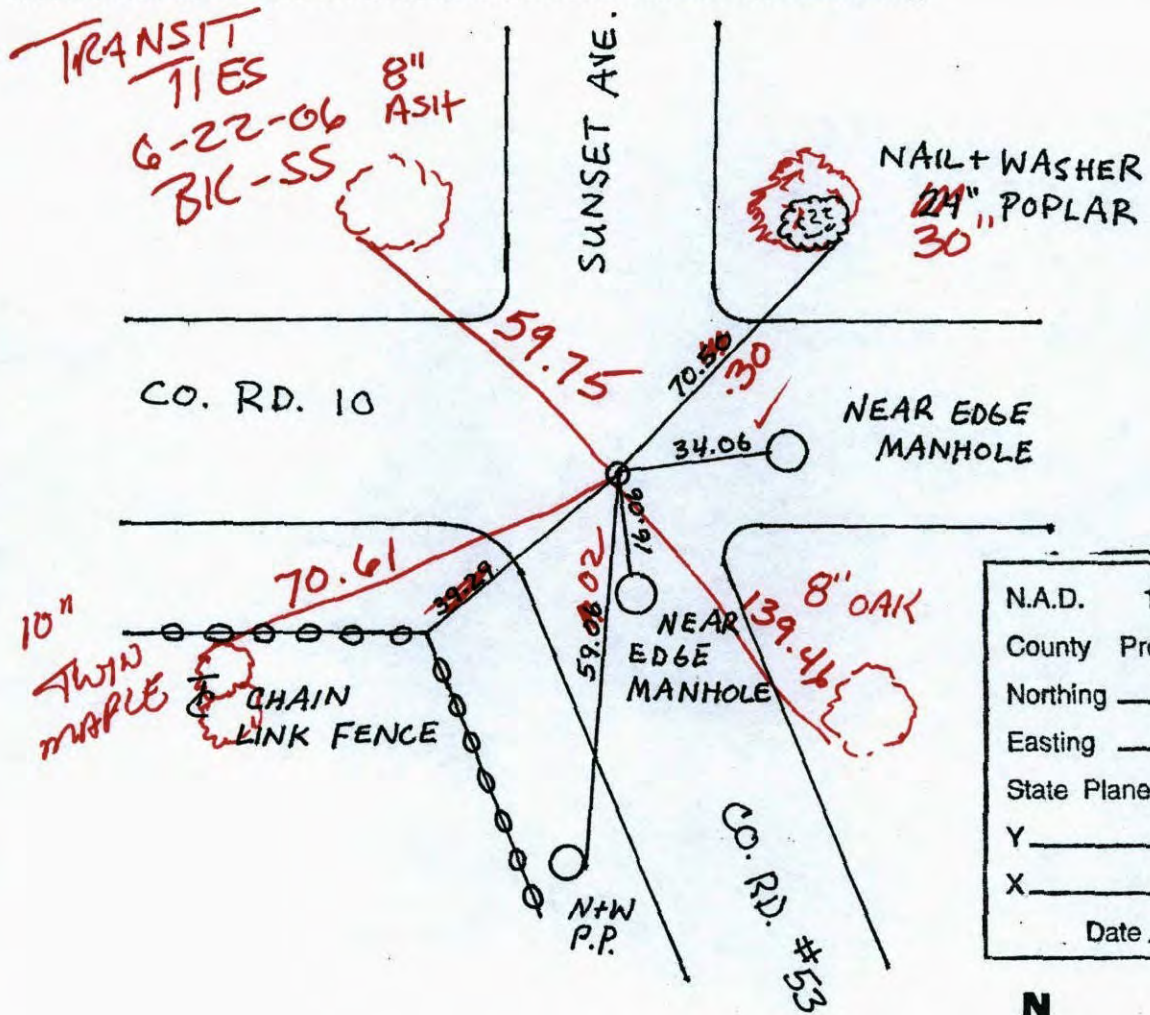 TRANSIT
TIES
6-22-06
BK-SS
8"
ASH
SUNSET AVE.
NAIL + WASHER
24" POPLAR
30"
59.75
70.50
.30
CO. RD. 10
34.06
NEAR EDGE
MANHOLE
16.06
70.61
39.29
59.06
.02
8" OAK
139.46
NEAR
EDGE
MANHOLE
10"
TWIN
MAPLE
CHAIN
LINK FENCE
N+W
P.P.
CO. RD. #53
N.A.D.
County
Northing
Easting
State Plane
Y
X
Date
N